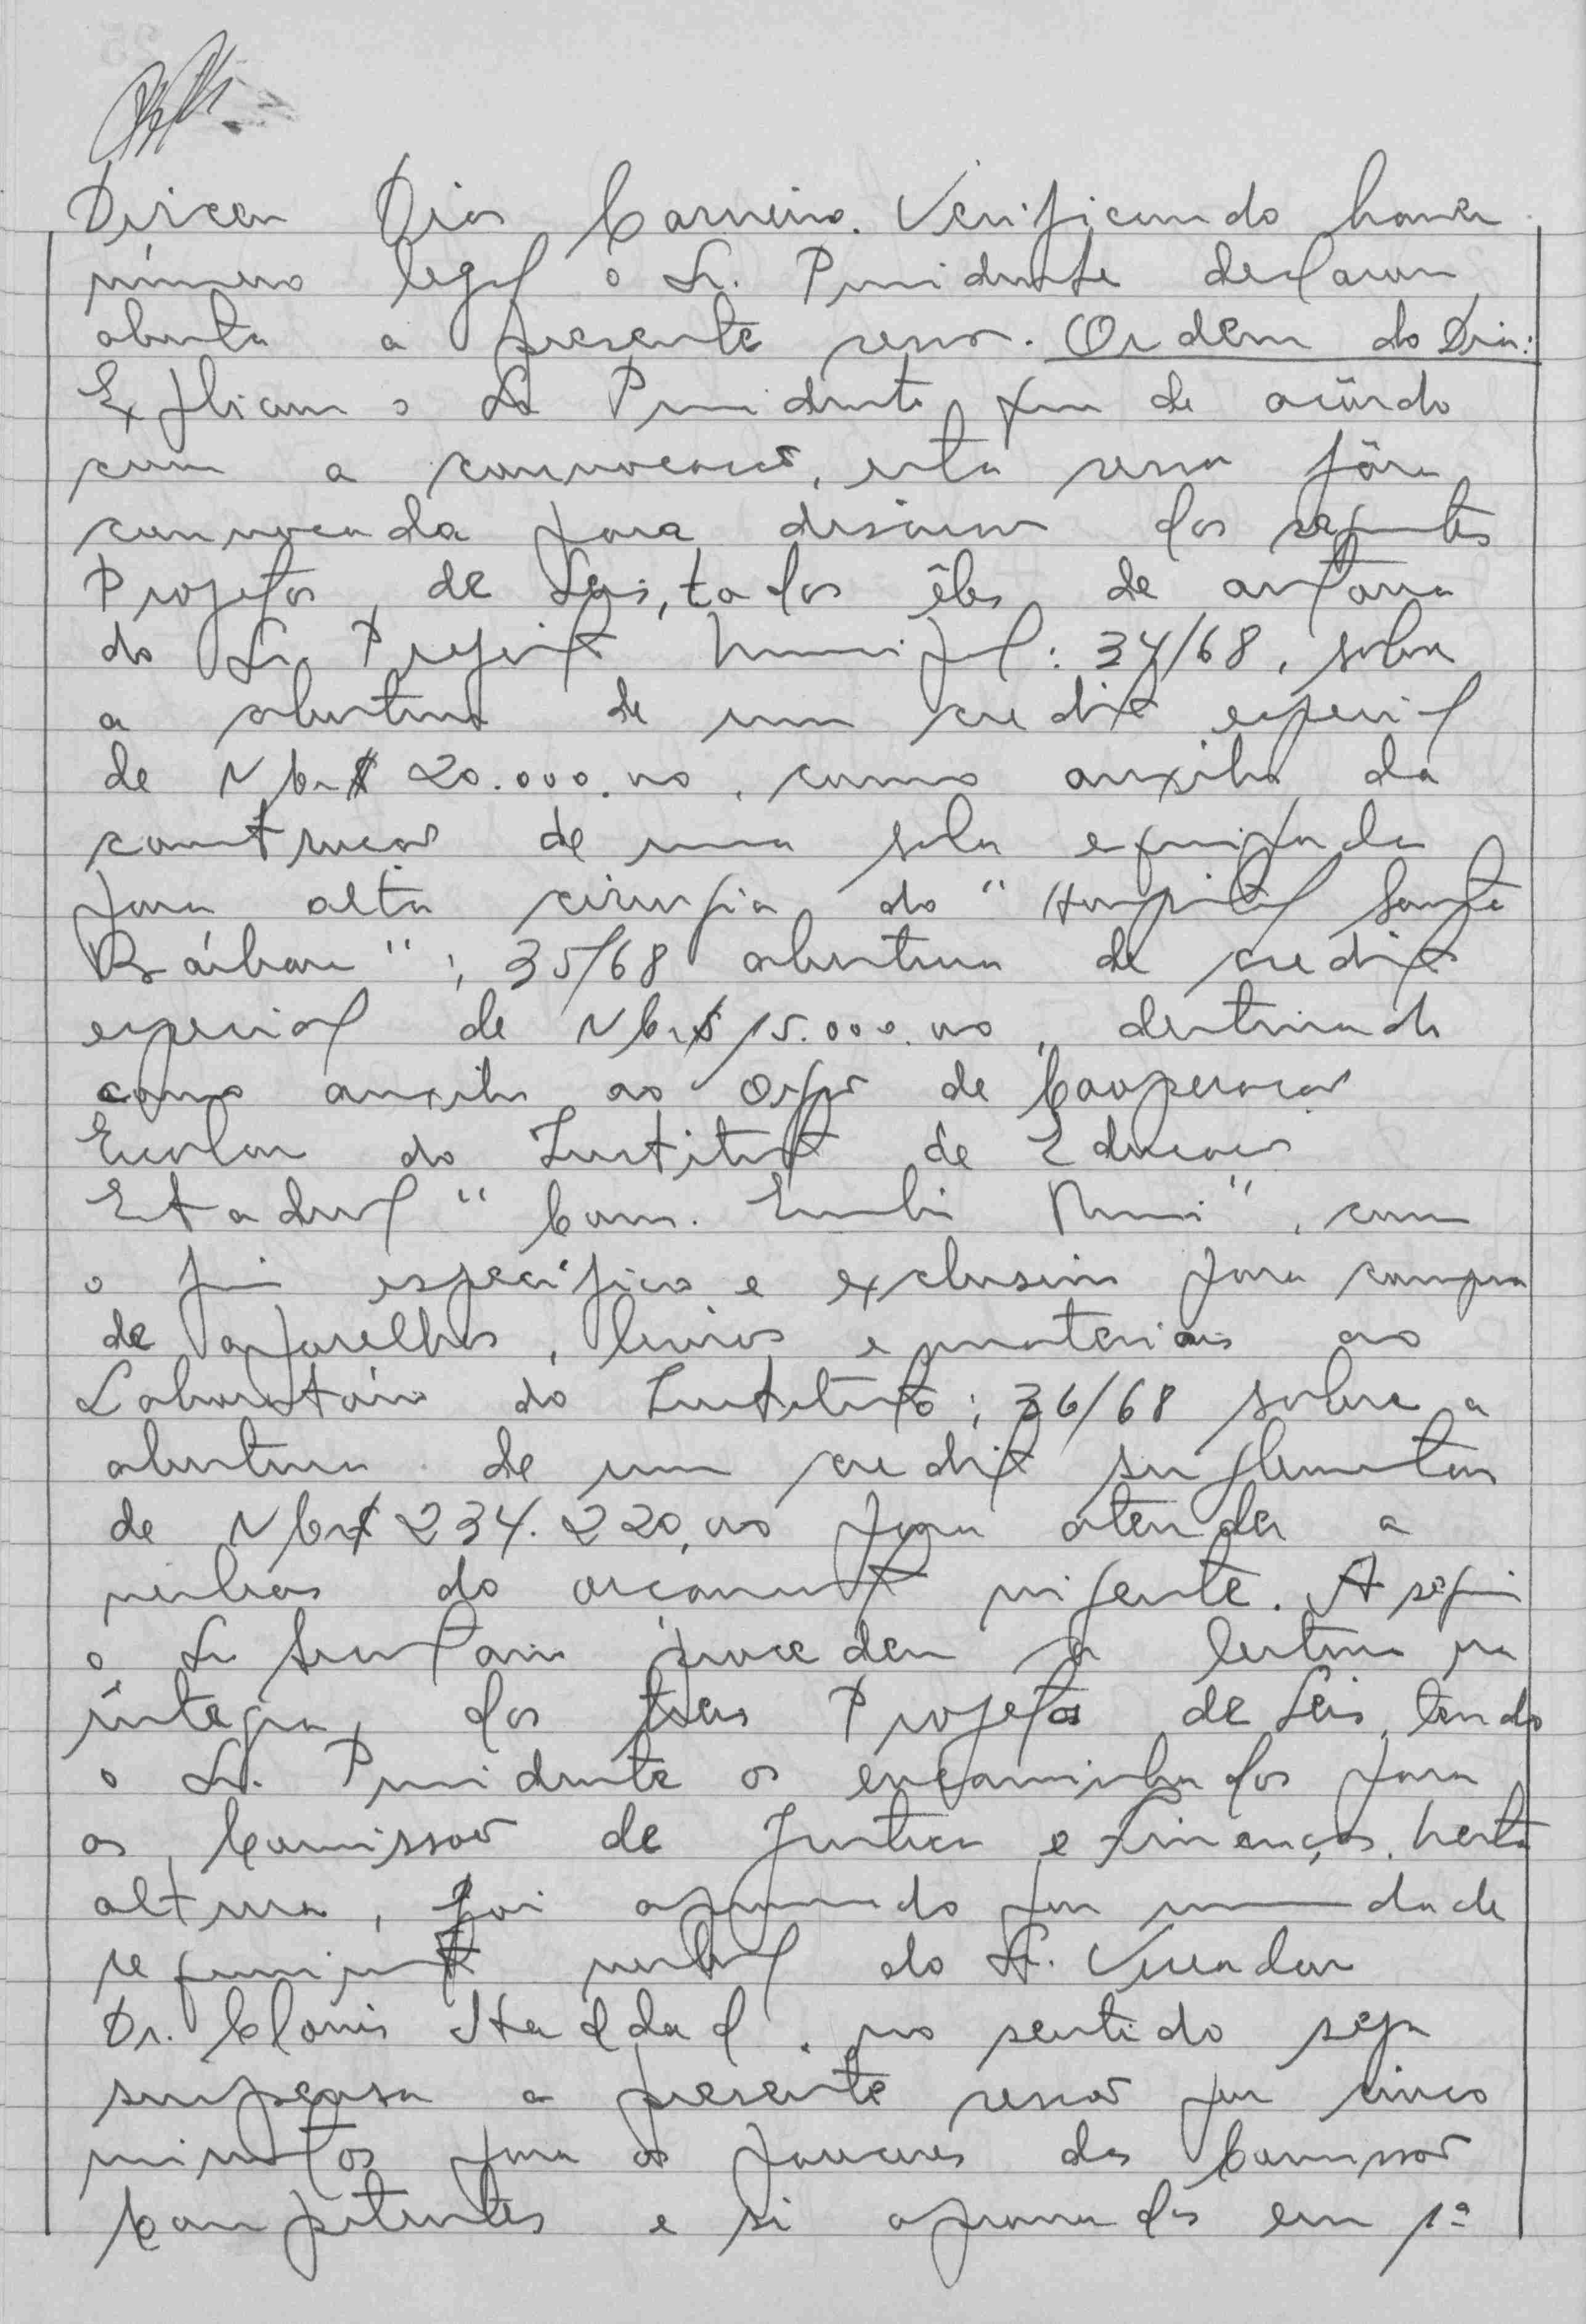 Dirceu Dias Carneiro. Verificando haver
número legal o Sr. Presidente declarou
aberta a presente sessão. Ordem do Dia:
Explicou o Sr. Presidente, que de acôrdo
com a convocação, esta sessão fôra
convocada para discussão dos seguintes
Projetos de Leis, todos êles de autoria
do Sr. Prefeito Municipal: 34/68, sobre
a abertura de um credito especial
de NCr$ 20.000.00, como auxilio da
construção de uma sala equipada
para alta cirurgia do "Hospital Santa
Bárbara"; 35/68 abertura de credito
especial de NCr$ 15.000.00, destinado
como auxilio ao Orgão de Cooperação
Escolar do Instituto de Educação
Estadual "Com. Emilio Romi", com
o fim especifico e exclusivo para compra
de aparelhos, livros e materiais ao
Laboratório do Instituto; 36/68 sobre a
abertura de um credito suplementar
de NCr$ 234.220,00 para atender a
verbas do orçamento vigente. A seguir
o Sr. Secretario procedeu a leitura na
íntegra, dos tres Projetos de Leis, tendo
o Sr. Presidente os encaminhados para
as Comissão de Justiça e Finanças. Nesta
altura, foi aprovado por unanimidade
requerimento verbal do Sr. Vereador
Dr. Clovis Haddad, no sentido seja
suspensa a presente sessão por cinco
minutos para os pareceres das Comissão
Competentes e si aprovados em 1ª